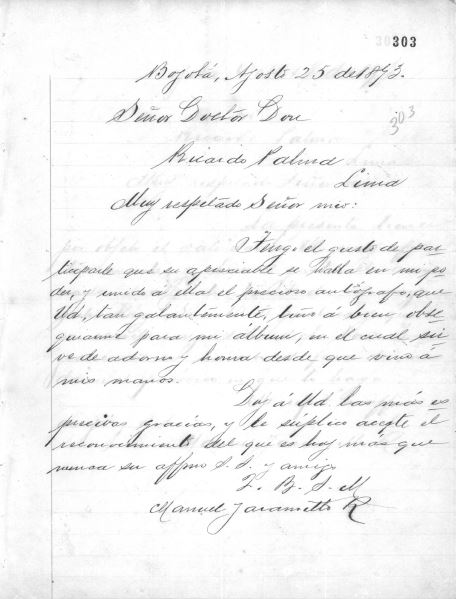 303
Bogotá, Agosto 25 de 1893.
303
Señor Doctor Don
Ricardo Palma
Lima
Muy respetado Señor mio:
Tengo el gusto de par-
ticiparle que su apreciable se halla en mi po-
der, y unido á ella el precioso autógrafo, que
Ud, tan galantemente, tuvo á bien obse-
quiarme para mi álbum, en el cual sir-
ve de adorno y honra desde que vino á
mis manos.
Doy á Ud las más es-
presivas gracias, y le súplico acepte el
reconocimiento del que es hoy más que
nunca su affmo S. S. y amigo
L. B. S. M
Manuel Jaramillo R